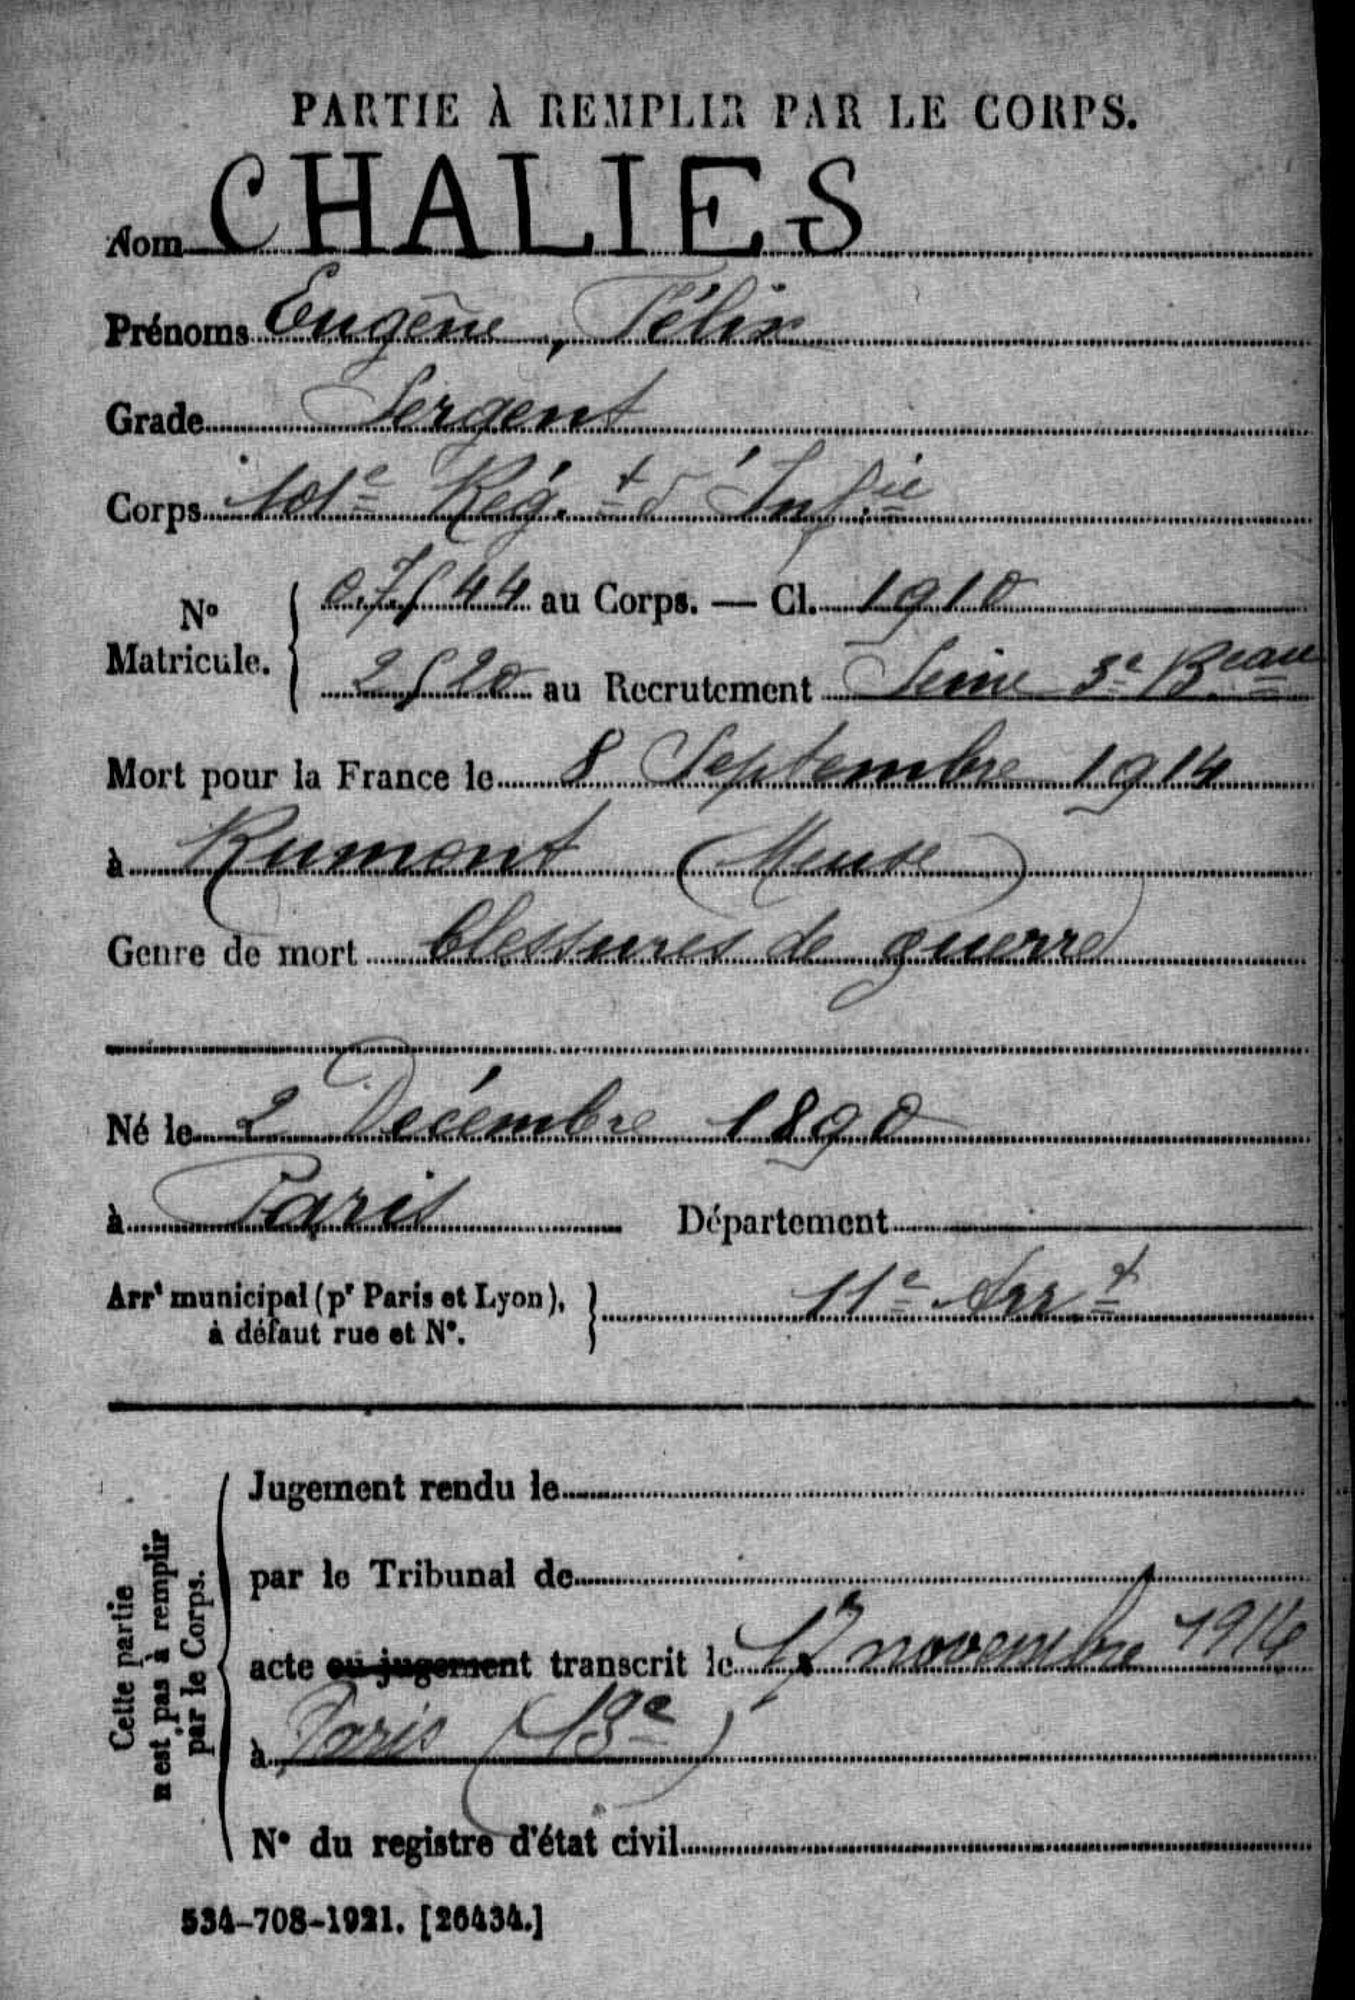 PARTIE À REMPLIR PAR LE CORPS.
Nom CHALIES
Prénoms Eugène, Félix
Grade Sergent
Corps 101e Rég.t d'Inf.ie
No Matricule. { 07544 au Corps. — Cl. 1910
2520 au Recrutement Seine 3e Beau
Mort pour la France le 8 Septembre 1914
à Rumont (Meuse)
Genre de mort blessures de guerre
Né le 2 Décembre 1890
à Paris Département
Arrt municipal (pr Paris et Lyon), à défaut rue et No. } 11e Arrt
Cette partie n'est pas à remplir par le Corps.
Jugement rendu le
par le Tribunal de
acte ou jugement transcrit le 17 novembre 1914
à Paris (13e)
No du registre d'état civil
534-708-1921. [26434.]